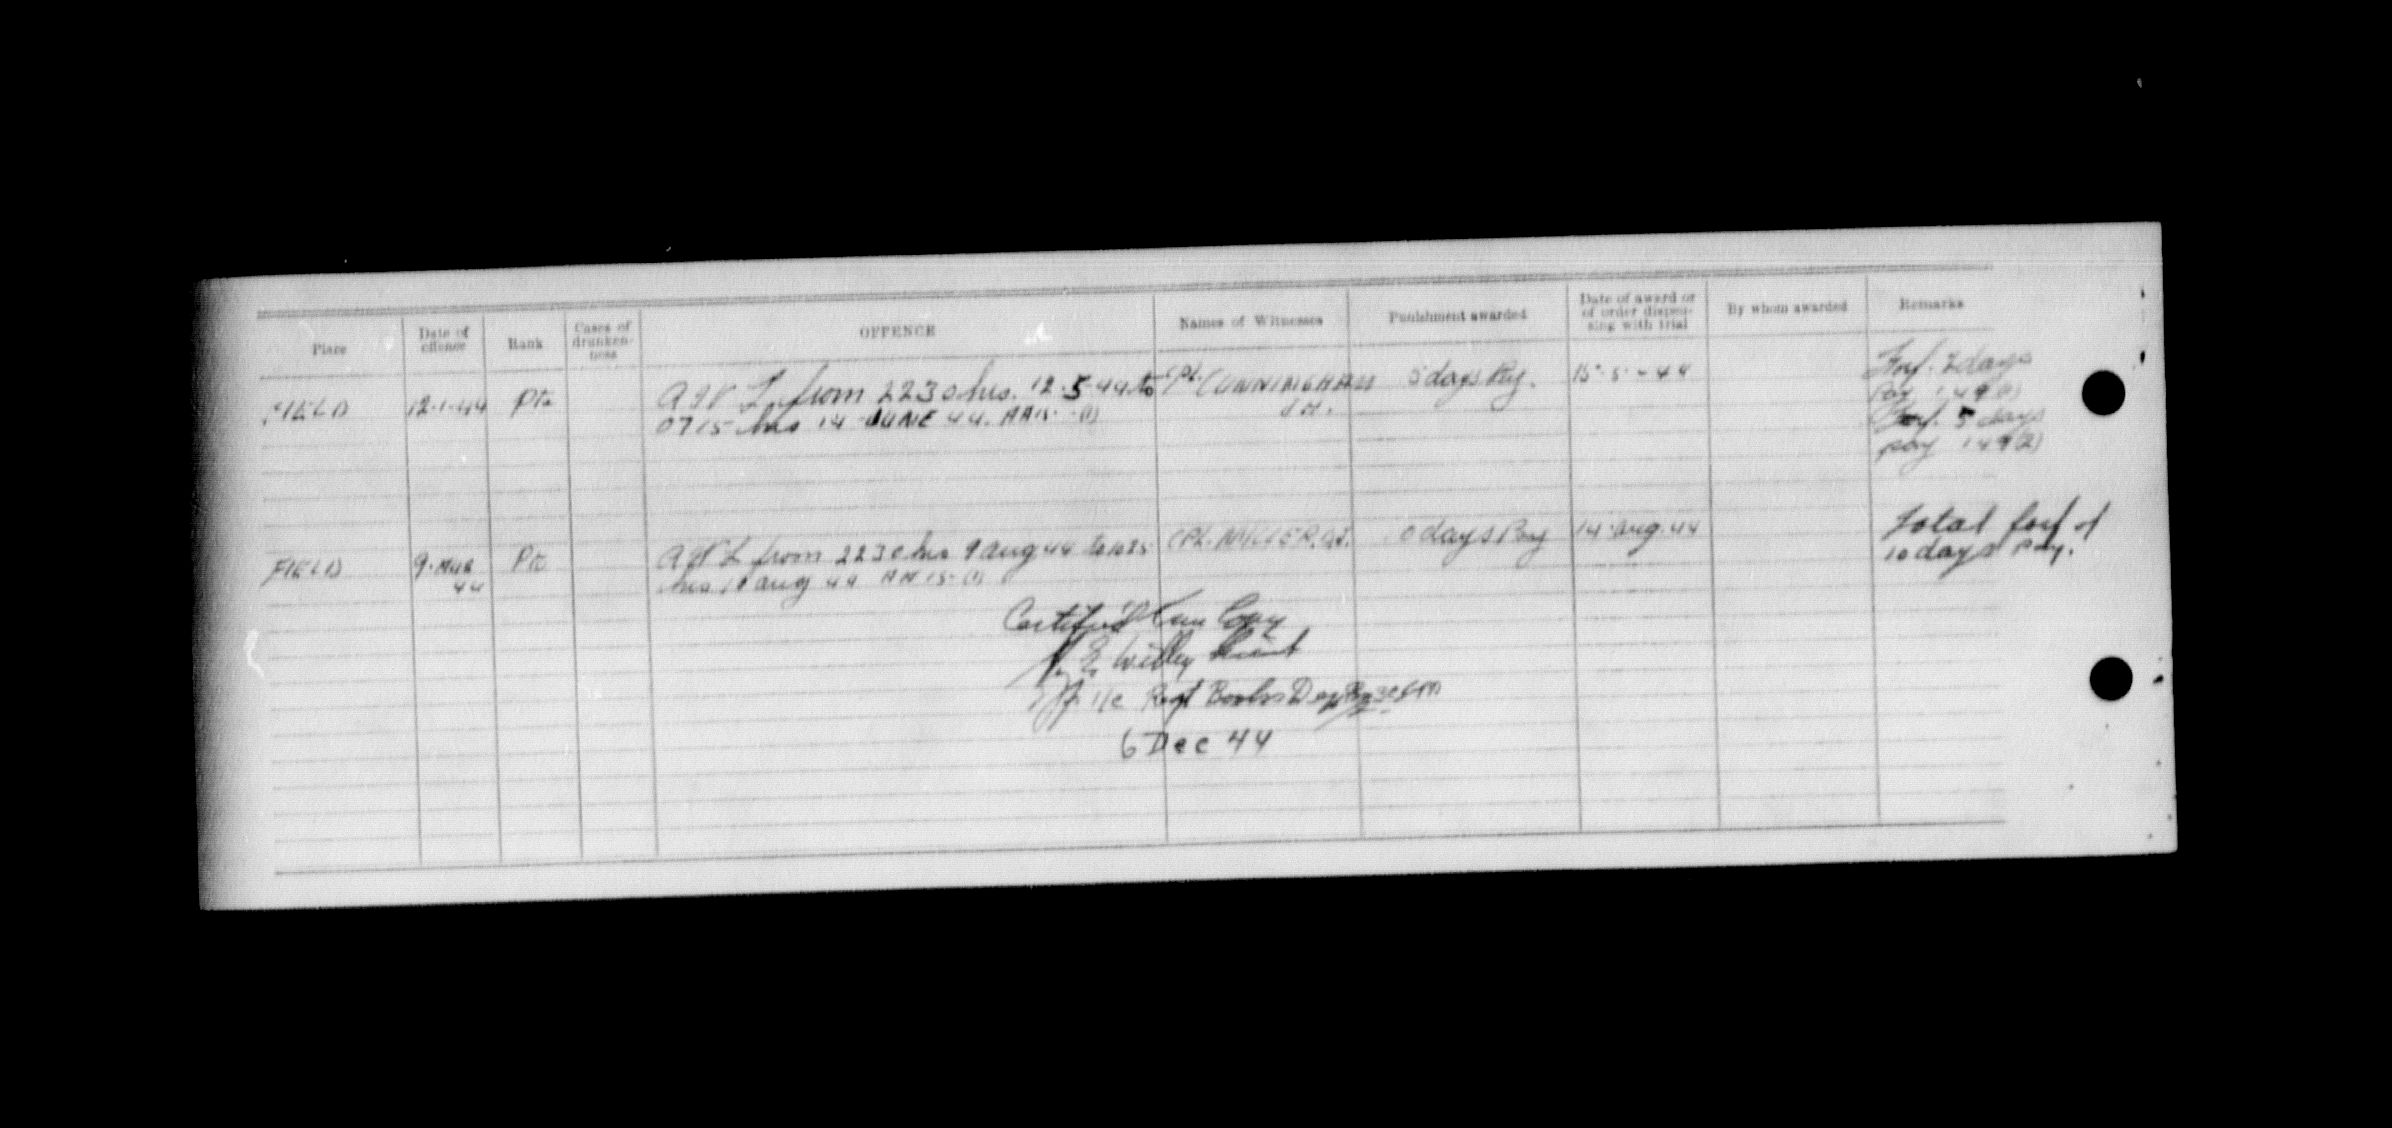 Place
Date of offence
Rank
Cases of drunken-ness
OFFENCE
Names of Witnesses
Punishment awarded
Date of award or of order dispen-sing with trial
By whom awarded
Remarks
FIELD 12-1-44 Pte AWL from 2230 hrs. 12-5-44 to Cpl. CUNNINGHAM 5 days Pay. 15-5-44 Forf. 2 days
0715 hrs 14 JUNE 44. AA15-(1) J.H. Pay 149(1)
Forf. 5 days
pay 149(2)
FIELD 9. AUG Pte AWL from 2230 hrs 9 Aug 44 to 1025 CPL. MILLER. 0 days Pay 14 Aug. 44 Total forf of
44 hrs 10 Aug 44 AA 15-(1) 10 days Pay.
Certified True Copy
E. Willey Lieut
i/c Regt Books Dep
6 Dec 44